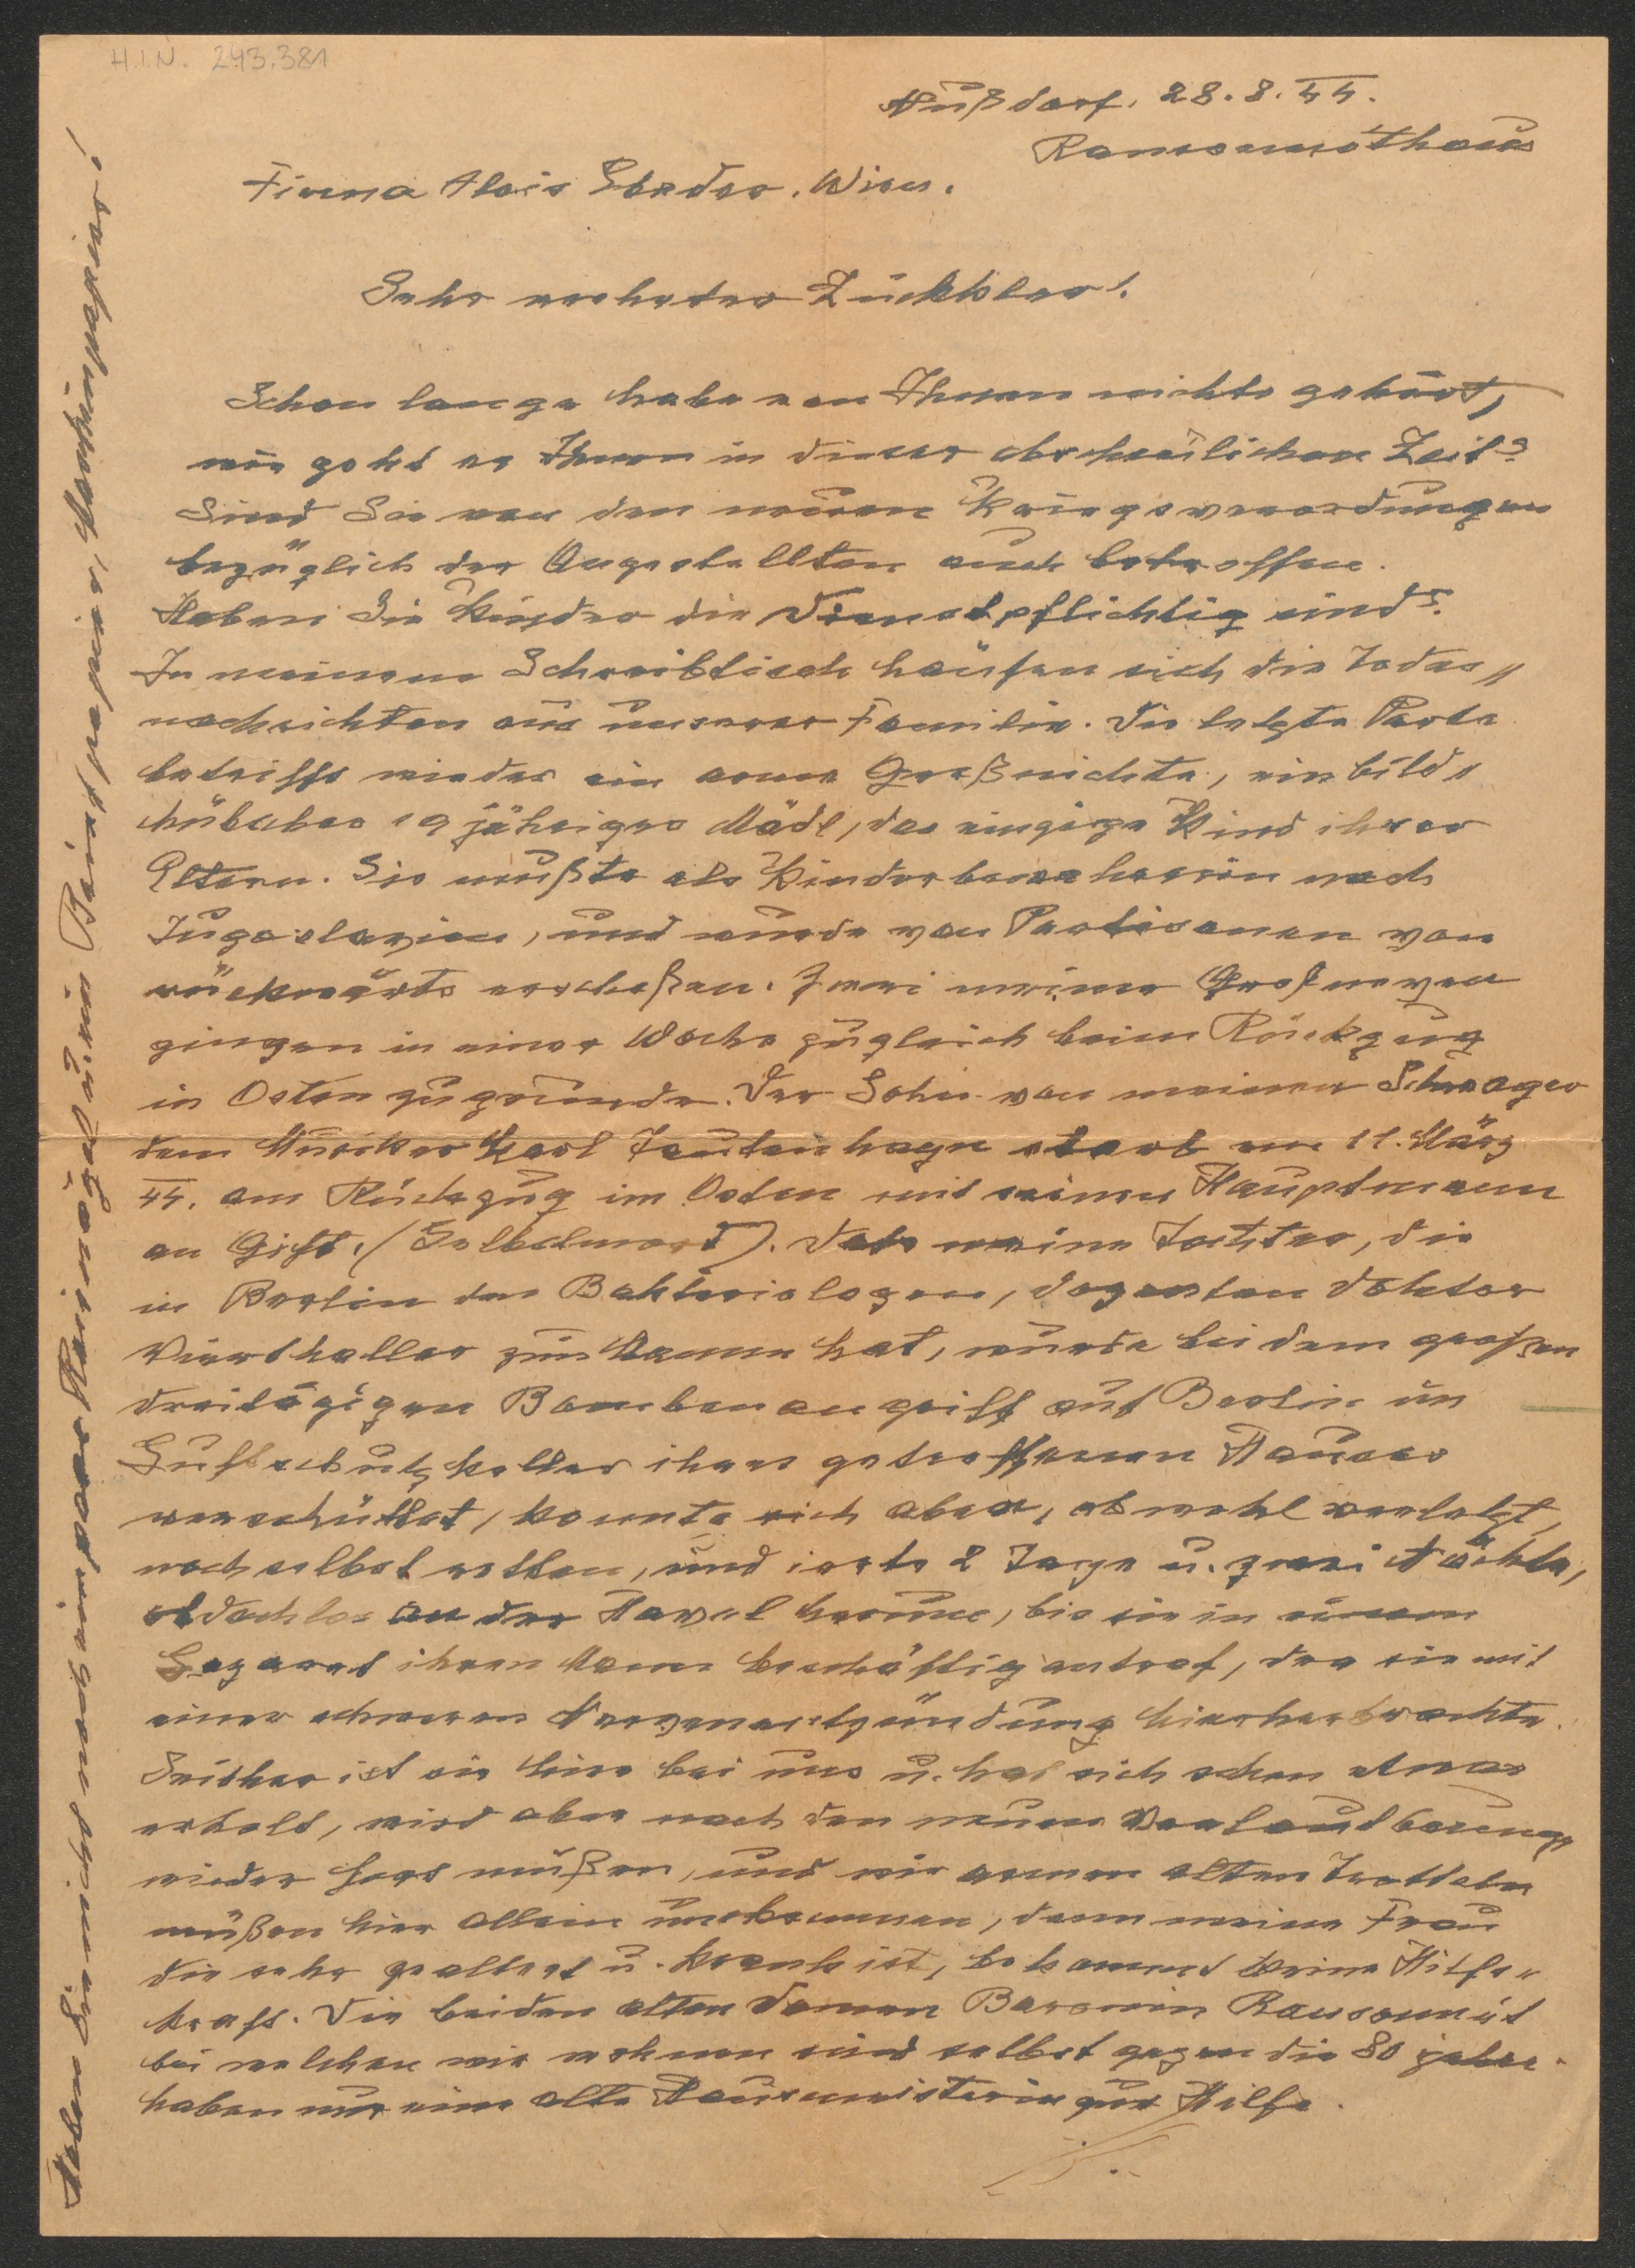 H.I.N. 243.381
Nußdorf, 28.8.44.
Ransonnethaus
Firma Alois Ebeder, Wien.
Sehr verehrter Zückbler!
Schon lange habe von Ihnen nichts gehört,
wie geht es Ihnen in dieser abscheulichen Zeit?
Sind Sie von den neuen Kriegsverordnungen
bezüglich der Angestellten auch betroffen.
Haben Sie Kinder die Dienstpflichtig sind?
In meinem Schreibtisch häufen sich die Todes"
nachrichten aus unserer Familie. Die letzte Parte
betrifft wieder ein arme Großnichte, ein bild"
hübsches 19 jähriges Mädl, das einzige Kind ihrer
Eltern. Sie mußte als Kinderbewahrerin nach
Jugoslavien, und wurde von Partisanen von
rückwärts erschoßen. Zwei meiner Großneven
gingen in einer Woche zugleich beim Rückzug
in Osten zugrunde. Der Sohn von meinem Schwager
dem Musiker Karl Tautenhayn starb am 11. März
44. am Rückzug im Osten mit seinem Hauptmann
an Gift. (Selbstmord). Die meine Tochter, die
in Berlin den Bakteriologen, Dozenten Doktor
Vierthaller zum Manne hat, wurde bei dem großen
dreitägigen Bombenangriff auf Berlin im
Luftschutzkeller ihres getroffenen Hauses
verschüttet, konnte sich aber, obwohl verletzt,
noch selbst retten, und irrte 2 Tage u. zwei Nächte,
obdachlos an der Havel herum, bis sie in einem
Lazaret ihren Mann beschäftig antraf, der sie mit
einer schweren Nervenentzündung hierherbrachte.
Seither ist sie hier bei uns u. hat sich schon etwas
erholt, wird aber nach den neuen Verlautbarungen
wieder fort müßen, und wir armen alten Trotteln
müßen hier allein umkommen, denn meine Frau
die sehr gealtert u. krank ist, bekommt keine Hilfs"
kraft. Die beiden alten Damen Baronin Ransonnet
bei welchen wir wohnen sind selbst gegen die 80 jahre.
haben nur eine alte Hausmeisterin zur Hilfe.
Haben Sie nicht